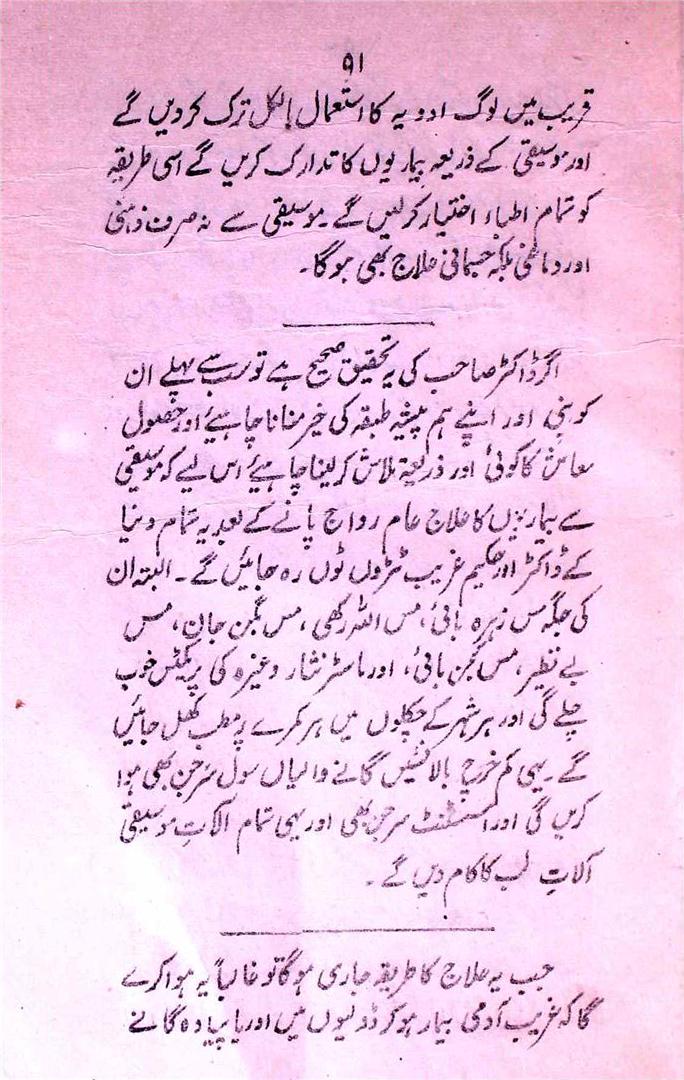 ۹۱
قریب میں لوگ ادویہ کا استعمال بالکل ترک کردیں گے
اور موسیقی کے ذریعہ بیماریوں کا تدارک کریں گے اسی طریقہ
کو تمام اطباء اختیار کرلیں گے۔ موسیقی سے نہ صرف ذہنی
اور دماغی بلکہ جسمانی علاج بھی ہوگا۔
اگر ڈاکٹر صاحب کی یہ تحقیق صحیح ہے تو سب سے پہلے ان
کو اپنی اور اپنے ہم پیشہ طبقہ کی خیر منانا چاہیئے اور حصول
معاش کا کوئی اور ذریعہ تلاش کرلینا چاہیئے اس لیے کہ موسیقی
سے بیماریوں کا علاج عام رواج پانے کے بعد یہ تمام دنیا
کے ڈاکٹر اور حکیم غریب ٹٹروں ٹوں رہ جائیں گے۔ البتہ ان
کی جگہ مس زہرہ بائی، مس اللہ رکھی، مس بگن جان، مس
بے نظیر، مس گجن بائی، اور ماسٹر نثار وغیرہ کی پریکٹس خوب
چلے گی اور ہر شہر کے چکلوں میں ہر کمرے پر مطب کھل جائیں
گے۔ یہی کم خرچ بالا نشیں گانے والیاں سول سرجن بھی ہوا
کریں گی اور اسسٹنٹ سرجن بھی اور یہی تمام آلاتِ موسیقی
آلاتِ طب کا کام دیں گے۔
جب یہ علاج کا طریقہ جاری ہوگا تو غالباً یہ ہوا کرے
گا کہ غریب آدمی بیمار ہوکر ڈولیوں میں اور یا پیادہ گانے